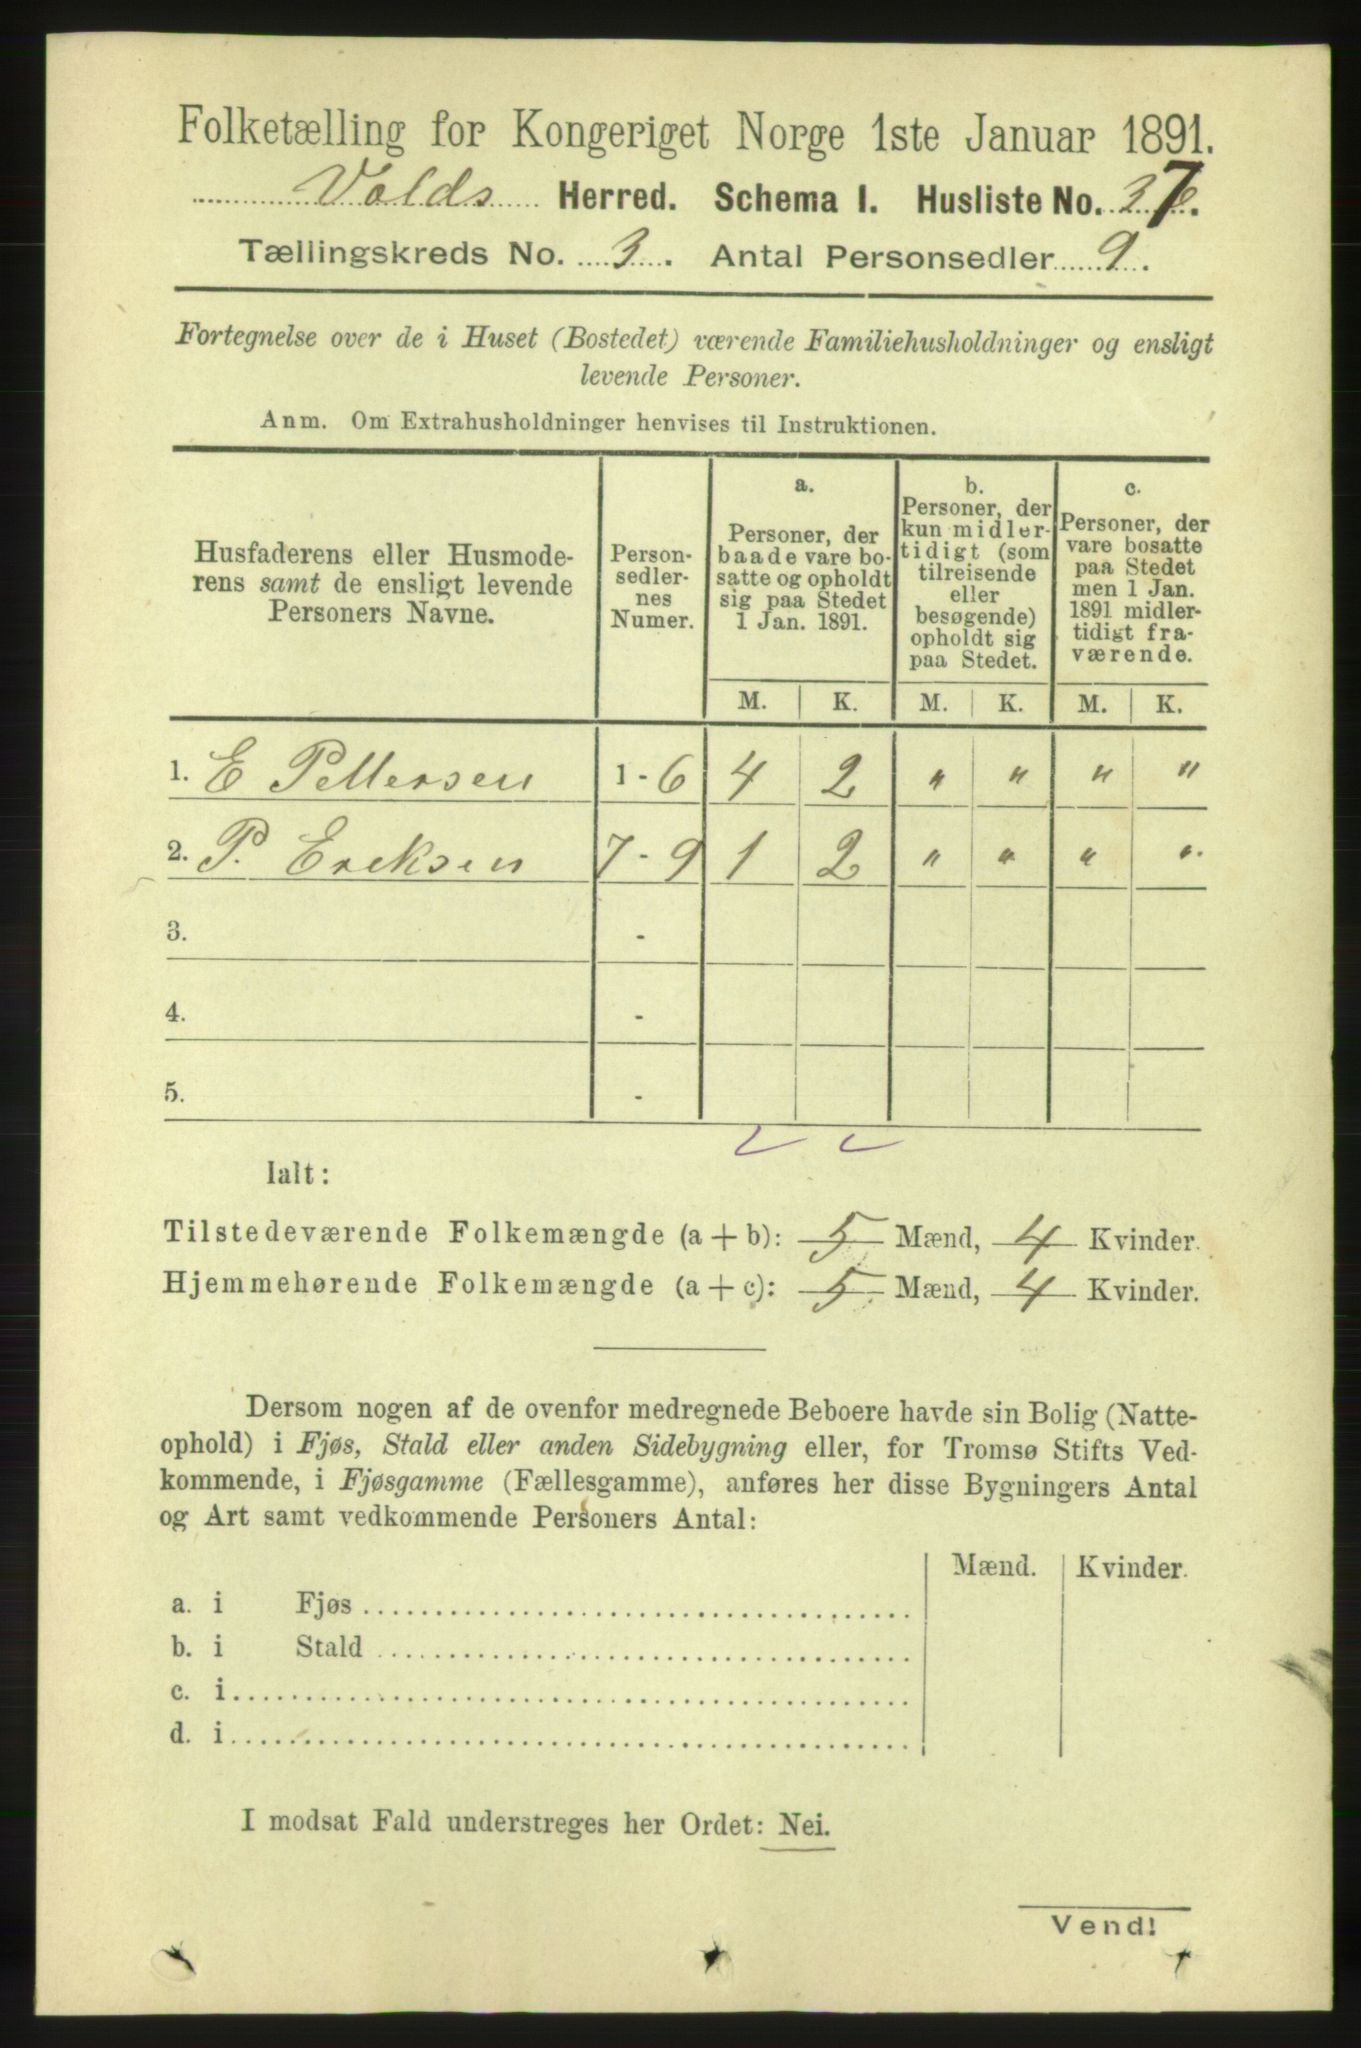 Folketælling for Kongeriget Norge 1ste Januar 1891.
Volds Herred. Schema I. Husliste No. 37.
Tællingskreds No. 3. Antal Personsedler 9.
Fortegnelse over de i Huset (Bostedet) værende Familiehusholdninger og ensligt
levende Personer.
Anm. Om Extrahusholdninger henvises til Instruktionen.
Husfaderens eller Husmode-
rens samt de ensligt levende
Personers Navne.
Person-
sedler-
nes
Numer.
a.
Personer, der
baade vare bo-
satte og opholdt
sig paa Stedet
1 Jan. 1891.
b.
Personer, der
kun midler-
tidigt (som
tilreisende
eller
besøgende)
opholdt sig
paa Stedet.
c.
Personer, der
vare bosatte
paa Stedet
men 1 Jan.
1891 midler-
tidigt fra-
værende.
M. K. M. K. M. K.
1. E Pettersen 1-6 4 2 " " " "
2. P. Ereksen 7-9 1 2 " " " "
3. -
4. -
5. -
Ialt:
Tilstedeværende Folkemængde (a + b): 5 Mænd, 4 Kvinder.
Hjemmehørende Folkemængde (a + c): 5 Mænd, 4 Kvinder.
Dersom nogen af de ovenfor medregnede Beboere havde sin Bolig (Natte-
ophold) i Fjøs, Stald eller anden Sidebygning eller, for Tromsø Stifts Ved-
kommende, i Fjøsgamme (Fællesgamme), anføres her disse Bygningers Antal
og Art samt vedkommende Personers Antal:
Mænd. Kvinder.
a. i Fjøs
b. i Stald
c. i
d. i
I modsat Fald understreges her Ordet: Nei.
Vend!